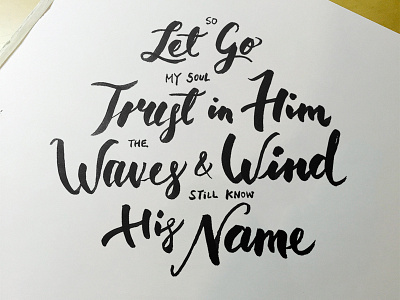 SO
Let Go
MY SOUL
Trust in Him
THE
Waves & Wind
STILL KNOW
His Name